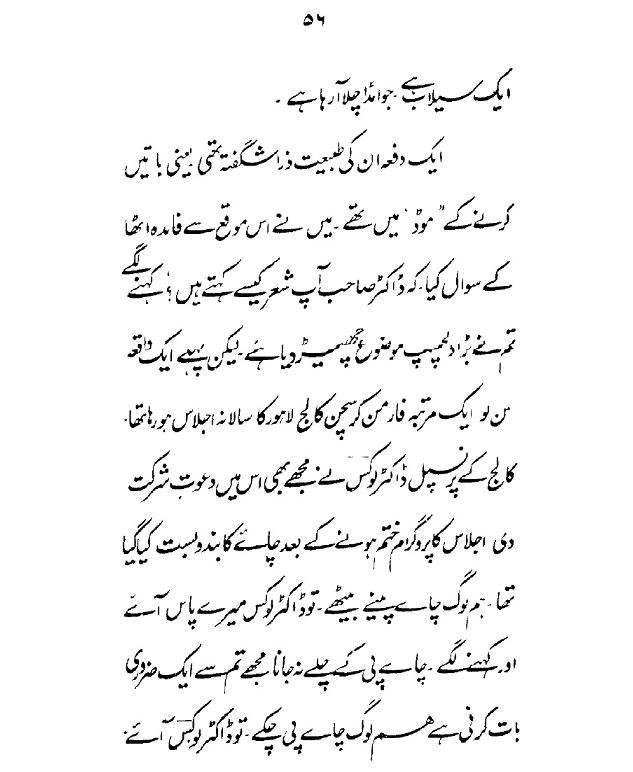 ۵۶
ایک سیلاب ہے جو امڈا چلا آرہا ہے ۔
ایک دفعہ ان کی طبیعت ذرا شگفتہ تھی یعنی باتیں
کرنے کے ”موڈ‘ میں تھے ۔ میں نے اس موقع سے فائدہ اٹھا
کے سوال کیا ۔ کہ ڈاکٹر صاحب آپ شعر کیسے کہتے ہیں ؟ کہنے لگے
تم نے بڑا دلچسپ موضوع چھیڑ دیا ہے ۔ لیکن پہلے ایک واقعہ
سن لو ایک مرتبہ فارمن کرسچن کالج لاہور کا سالانہ اجلاس ہورہا تھا ۔
کالج کے پرنسپل ڈاکٹر لوکس نے مجھے بھی اس میں دعوتِ شرکت
دی اجلاس کا پروگرام ختم ہونے کے بعد چائے کا بندوبست کیا گیا
تھا ۔ ہم لوگ چاے پینے بیٹھے ۔ تو ڈاکٹر لوکس میرے پاس آئے
اور کہنے لگے ۔ چاے پی کے چلے نہ جانا مجھے تم سے ایک ضروری
بات کرنی ہے ہم لوگ چاے پی چکے ۔ تو ڈاکٹر لوکس آئے ۔